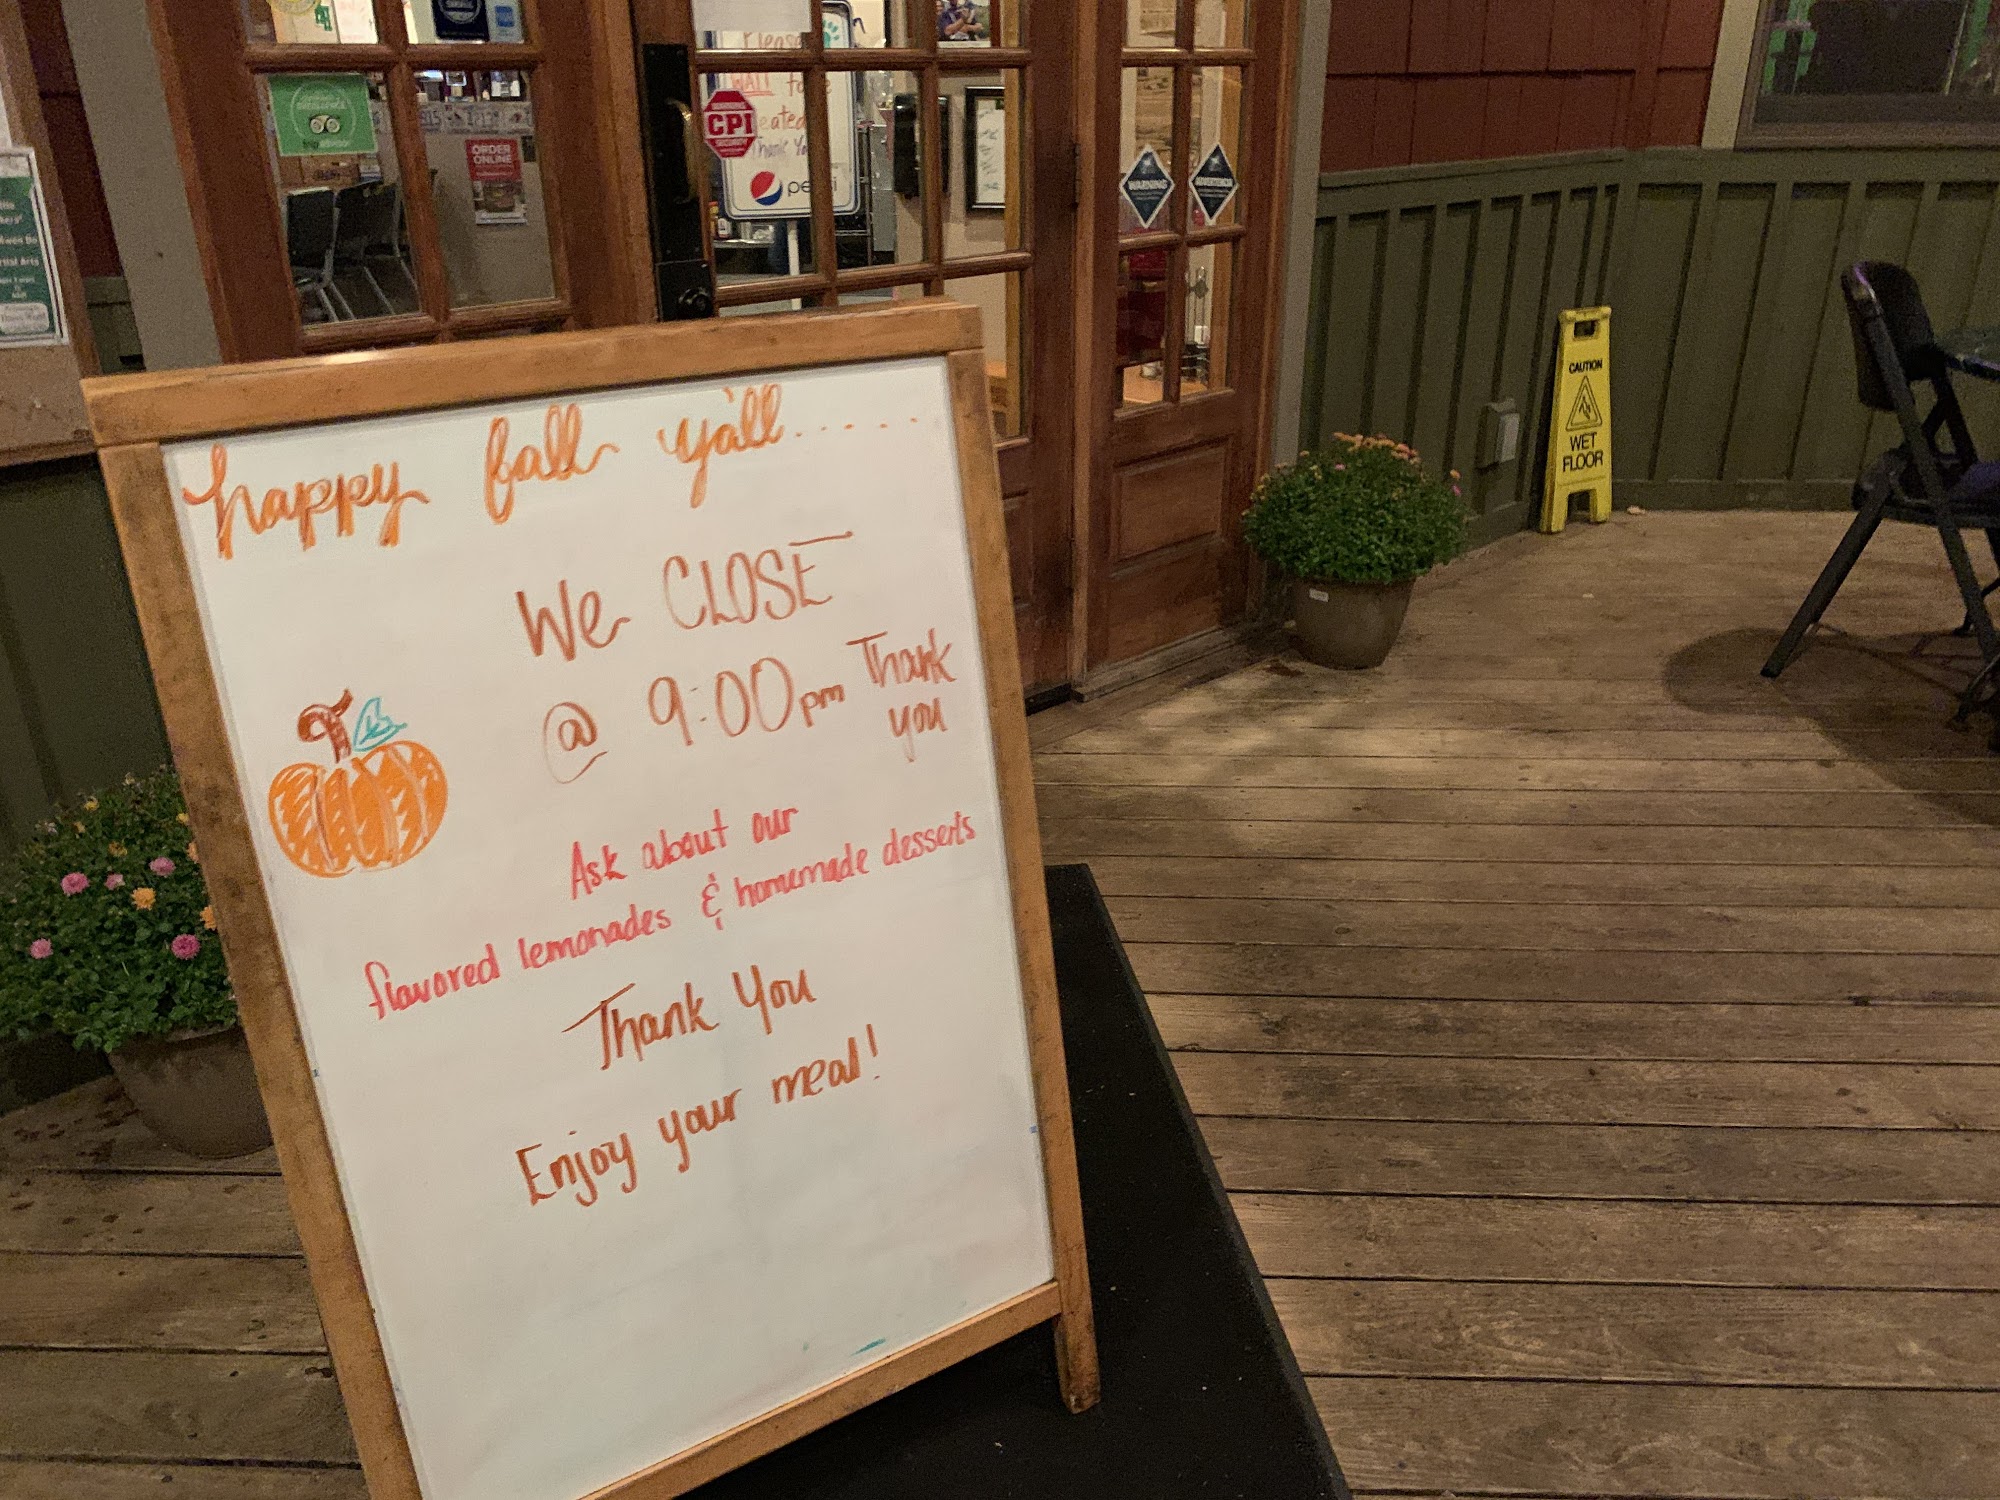 happy fall y'all.....
We CLOSE
@ 9:00pm Thank you
Ask about our
flavored lemonades & homemade desserts
Thank You
Enjoy your meal!
Please
WAIT to be
eated
Thank Yo
pepsi
WARNING
CPI
SECURITY
ORDER
ONLINE
tripadvisor
WARNING
CAUTION
WET
FLOOR